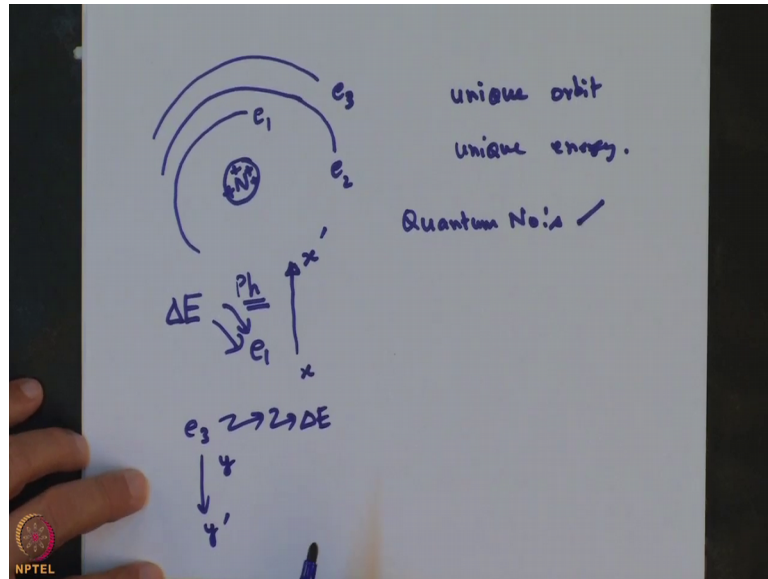 e₃
e₁
+ + N + +
e₂
unique orbit
unique energy.
Quantum No:s ✓
x'
Ph
ΔE
e₁
x
e₃ ΔE
y
y'
NPTEL